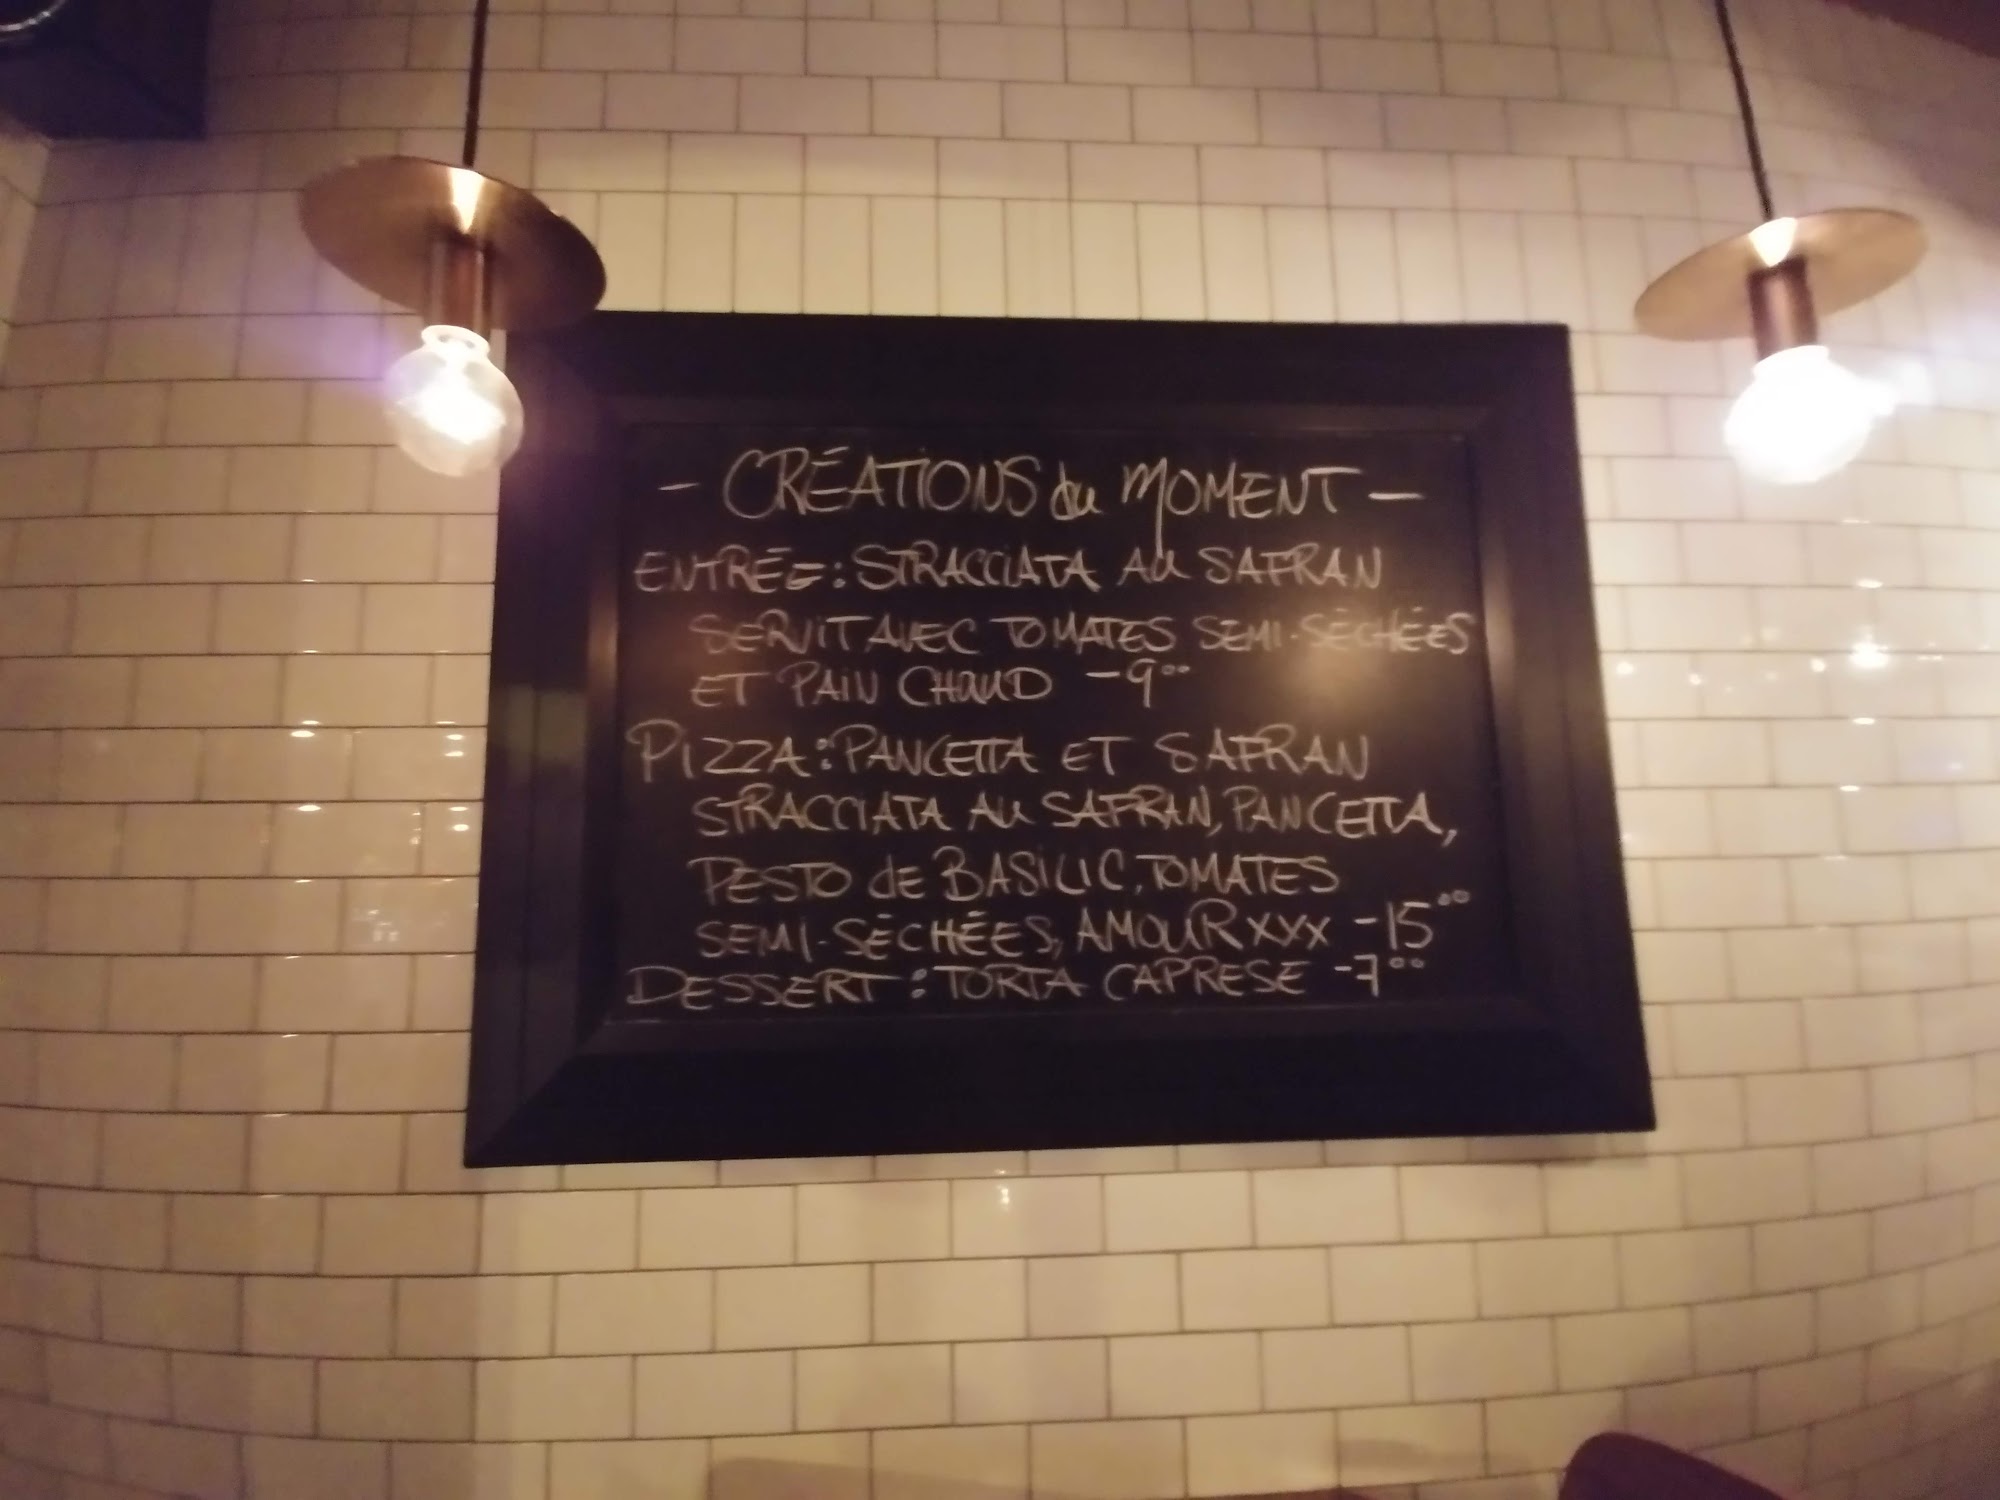 - CRÉATIONS du MOMENT -
ENTRÉE: STRACCIATA AU SAFRAN
SERVIT AVEC TOMATES SEMI-SÉCHÉES
ET PAIN CHAUD -9°°
PIZZA: PANCETTA ET SAFRAN
STRACCIATA AU SAFRAN, PANCETTA,
PESTO de BASILIC, TOMATES
SEMI-SÉCHÉES, AMOUR XXX -15°°
DESSERT: TORTA CAPRESE -7°°